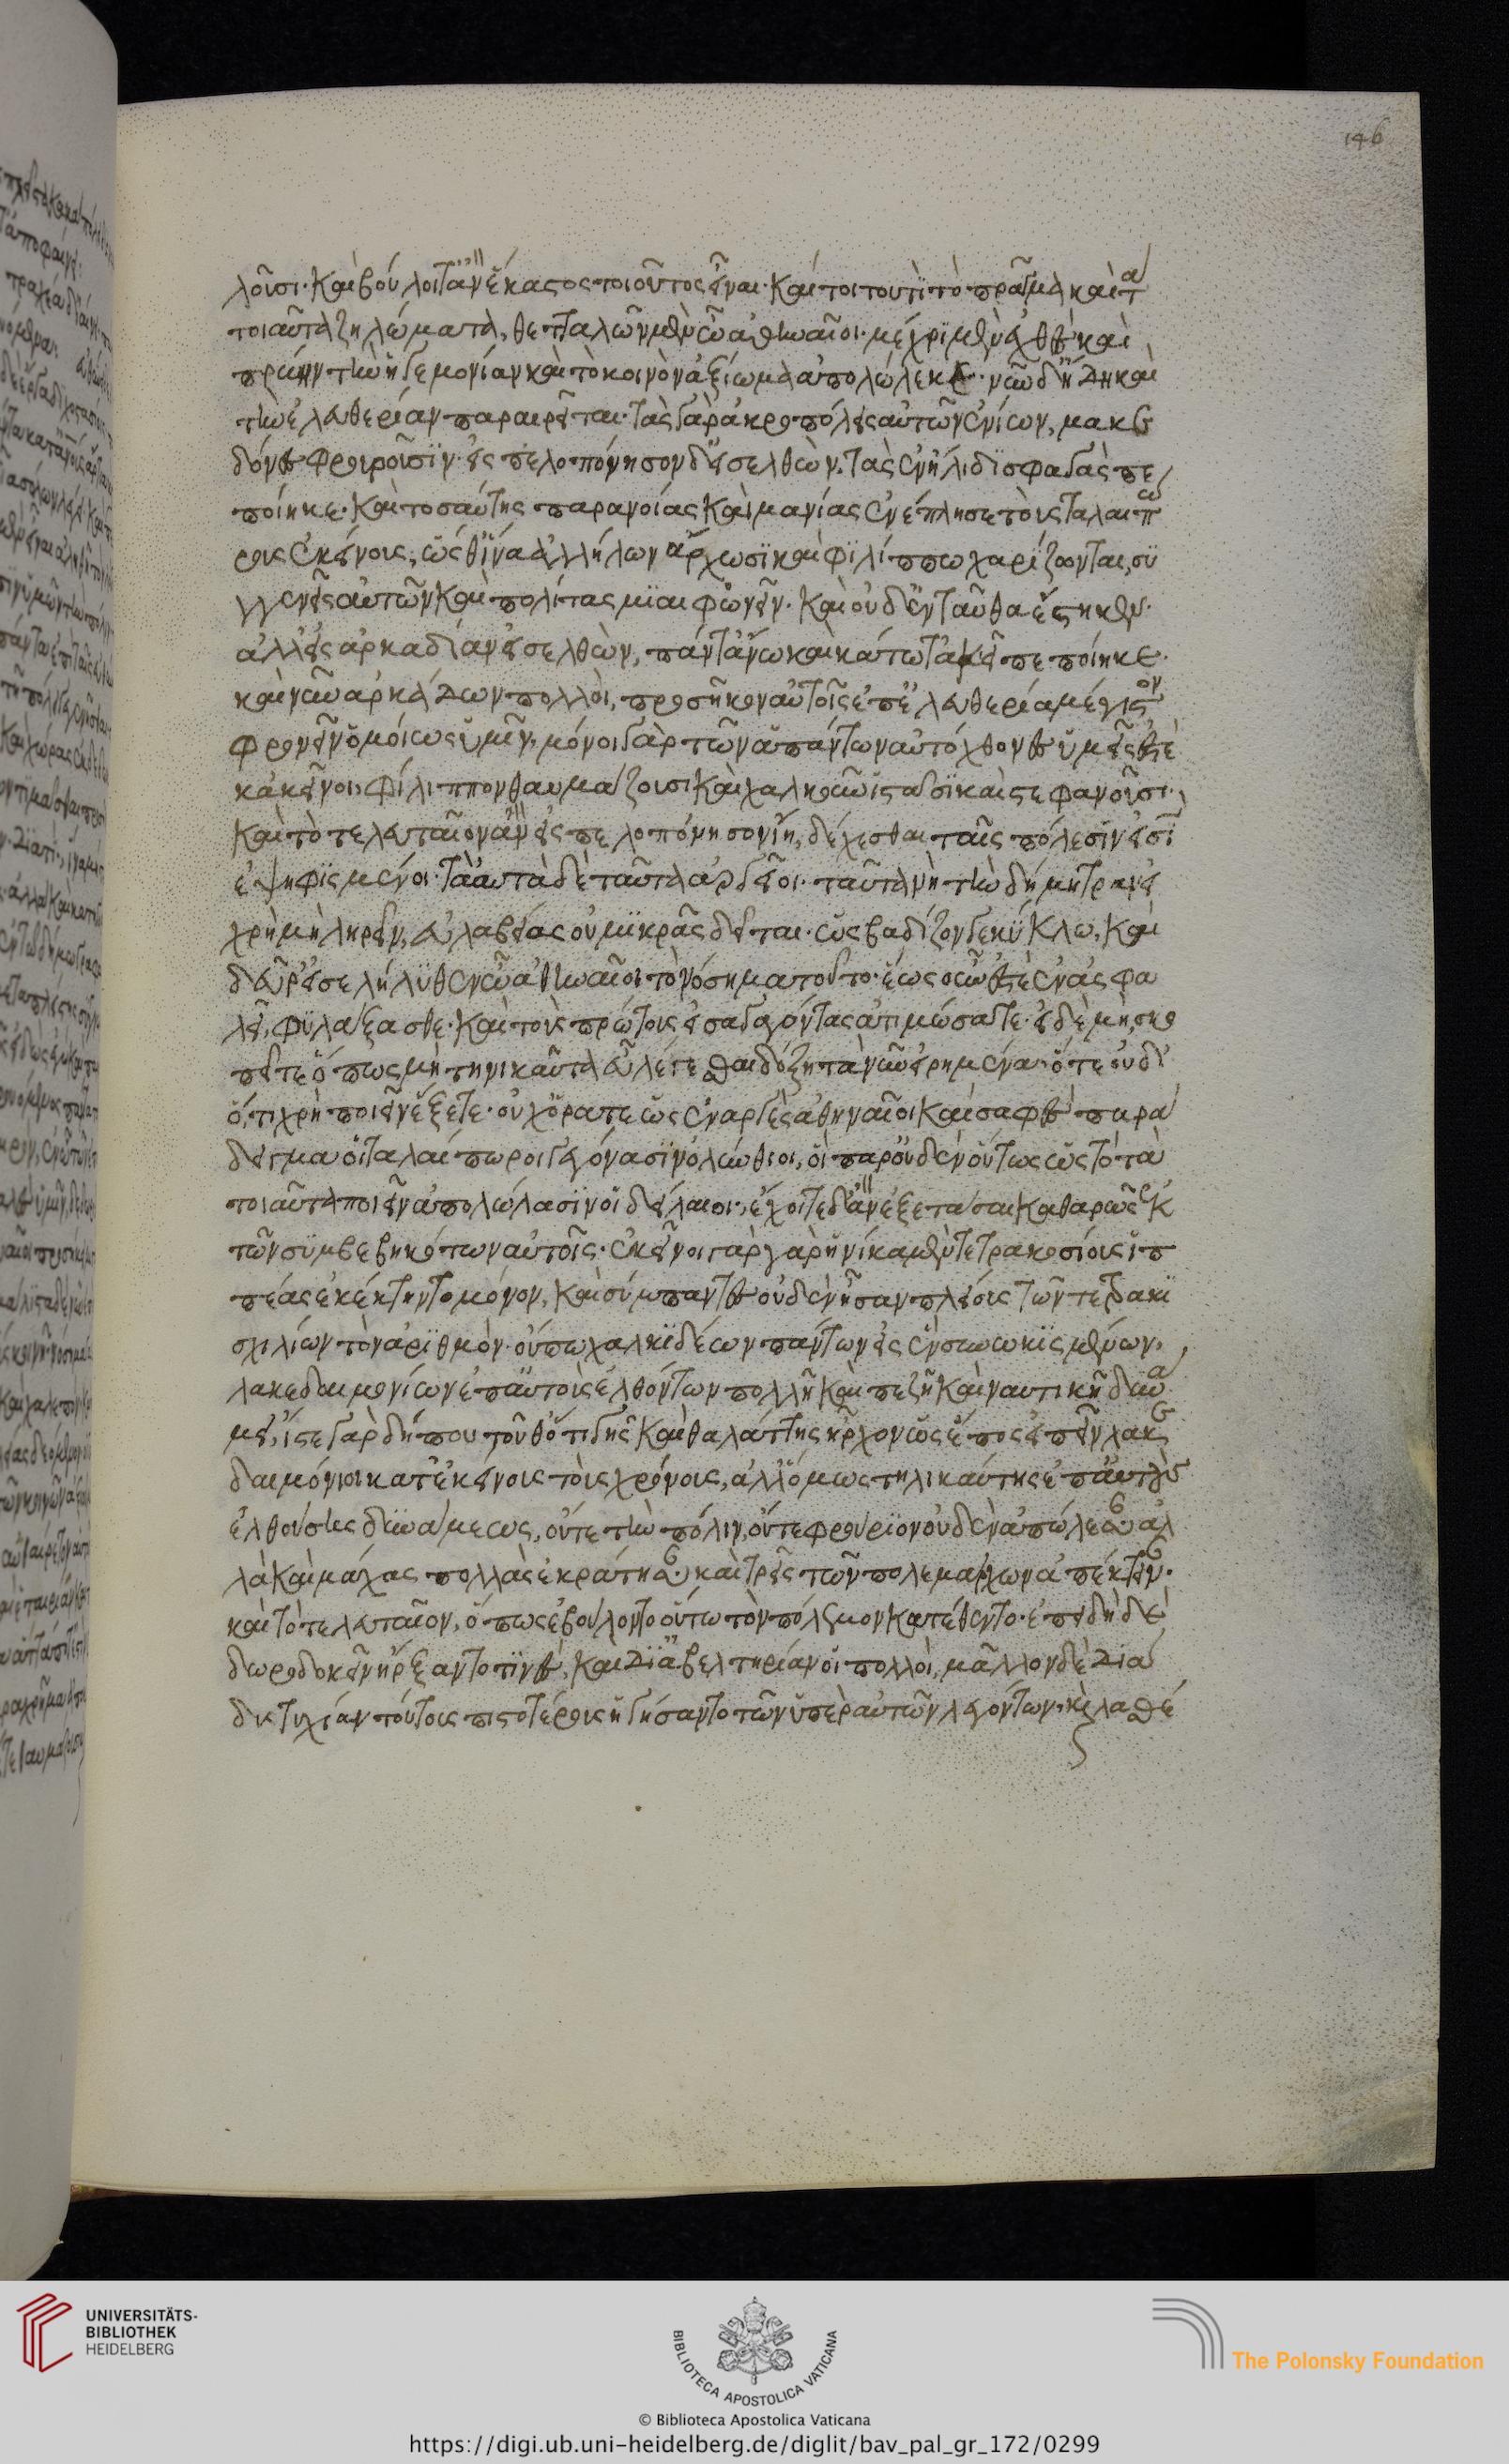 λοῦσι· καὶ βούλοιτ' ἂν ἕκαστος τοιοῦτος εἶναι· καίτοι τουτὶ τὸ πρᾶγμα καὶ τὰ
τοιαῦτα ζηλώματα, θετταλῶν μὲν ὦ ἀθηναῖοι· μέχρι μὲν ἐχθὲς καὶ
πρώην τὴν ἡγεμονίαν καὶ τὸ κοινὸν ἀξίωμα ἀπολώλεκε· νῦν δ' ἤδη καὶ
τὴν ἐλευθερίαν παραιρεῖται· τὰς γὰρ ἀκροπόλεις αὐτῶν ἐνίων, μακε
δόνες φρουροῦσιν· εἰς πελοπόνησον δ' εἰσελθὼν, τὰς ἐν ἤλιδι σφαγὰς πε
ποίηκε· καὶ τοσαύτης παρανοίας καὶ μανίας ἐνέπλησε τοὺς ταλαιπώ
ρους ἐκείνους, ὥσθ' ἵνα ἀλλήλων ἄρχωσι καὶ φιλίππω χαρίζωνται, συ
γγενεῖς αὐτῶν καὶ πολίτας μιαιφωνεῖν· καὶ οὐδ' ἐνταῦθα ἕστηκεν·
ἀλλ' εἰς ἀρκαδίαν εἰσελθὼν, πάντ' ἄνω καὶ κάτω τἀκεῖ πεποίηκε·
καὶ νῦν ἀρκάδων πολλοὶ, προσῆκον αὐτοῖς ἐπ' ἐλευθερία μέγιστον
φρονεῖν ὁμοίως ὑμῖν, μόνοι γὰρ τῶν ἁπάντων αὐτόχθονες ὑμεῖς ἐστὲ
κἀκεῖνοι, φίλιππον θαυμάζουσι καὶ χαλκοῦν ἱστᾶσι καὶ στεφανοῦσι·
καὶ τὸ τελευταῖον ἂν εἰς πελοπόνησον ἴῃ, δέχεσθαι ταῖς πόλεσίν εἰσι
ἐψηφισμένοι· τὰ αὐτὰ δὲ ταῦτα ἀργεῖοι· ταῦτα νὴ τὴν δήμητραν εἰ
χρὴ μὴ ληρεῖν, εὐλαβείας οὐ μικρᾶς δεῖται· ὡς βαδίζον γε κύκλω, καὶ
δεῦρ' εἰσελήλυθεν ὦ ἀθηναῖοι τὸ νόσημα τοῦτο· ἕως οὖν ἐστὲ ἐν ἀσφα
λεῖ, φυλάξασθε· καὶ τοὺς πρώτους εἰσαγαγόντας ἀτιμώσατε· εἰ δὲ μὴ, σκο
πεῖτε ὅπως μὴ τηνικαῦτα εὖ λέγεσθαι δόξη τὰ νῦν εἰρημένα· ὅτε οὐδ'
ὅ, τι χρὴ ποιεῖν ἕξετε· οὐχ ὁρᾶτε ὡς ἐναργὲς ἀθηναῖοι καὶ σαφὲς παρά
δειγμα οἱ ταλαίπωροι γεγόνασιν ὀλύνθιοι, οἳ παρ' οὐδὲν οὕτως ὡς τὸ τὰ
τοιαῦτα ποιεῖν ἀπολώλασιν οἱ δείλαιοι, ἔχοιτε δ' ἂν ἐξετάσαι καθαρῶς ἐκ
τῶν συμβεβηκότων αὐτοῖς· ἐκεῖνοι γὰρ γὰρ ἡνίκα μὲν τετρακοσίους ἱπ
πέας ἐκέκτηντο μόνον, καὶ σύμπαντες οὐδὲν ἦσαν πλείους τῶν πεντακι
σχιλίων τὸν ἀριθμὸν· οὔπω χαλκιδέων πάντων εἰς ἓν συνωκισμένων,
λακεδαιμονίων ἐπ' αὐτοὺς ἐλθόντων πολλῆ καὶ πεζῆ καὶ ναυτικῆ δυνά
μει, ἴστε γὰρ δήπου τοῦθ' ὅτι γῆς καὶ θαλάττης ἦρχον ὡς ἔπος εἰπεῖν λακε
δαιμόνιοι κατ' ἐκείνους τοὺς χρόνους, ἀλλ' ὅμως τηλικαύτης ἐπ' αὐτοὺς
ἐλθούσης δυνάμεως, οὔτε τὴν πόλιν, οὔτε φρούριον οὐδὲν ἀπώλεσαν, ἀλ
λὰ καὶ μάχας πολλὰς ἐκράτησαν, καὶ τρεῖς τῶν πολεμάρχων ἀπέκτειναν·
καὶ τὸ τελευταῖον, ὅπως ἐβούλοντο οὕτω τὸν πόλεμον κατέθεντο· ἐπειδὴ δὲ
δωροδοκεῖν ἤρξαντό τινες, καὶ δι' ἀβελτηρίαν οἱ πολλοὶ, μᾶλλον δὲ διὰ
δυστυχίαν τούτους πιστοτέρους ἡγήσαντο τῶν ὑπὲρ αὐτῶν λεγόντων, κ λασθέ
146
UNIVERSITÄTS-
BIBLIOTHEK
HEIDELBERG
BIBLIOTECA APOSTOLICA VATICANA
The Polonsky Foundation
© Biblioteca Apostolica Vaticana
https://digi.ub.uni-heidelberg.de/diglit/bav_pal_gr_172/0299